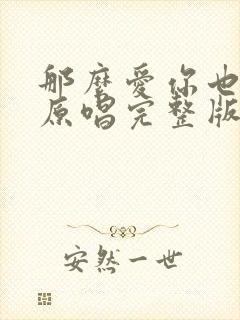 那麼愛你也
原唱完整版
安然一世